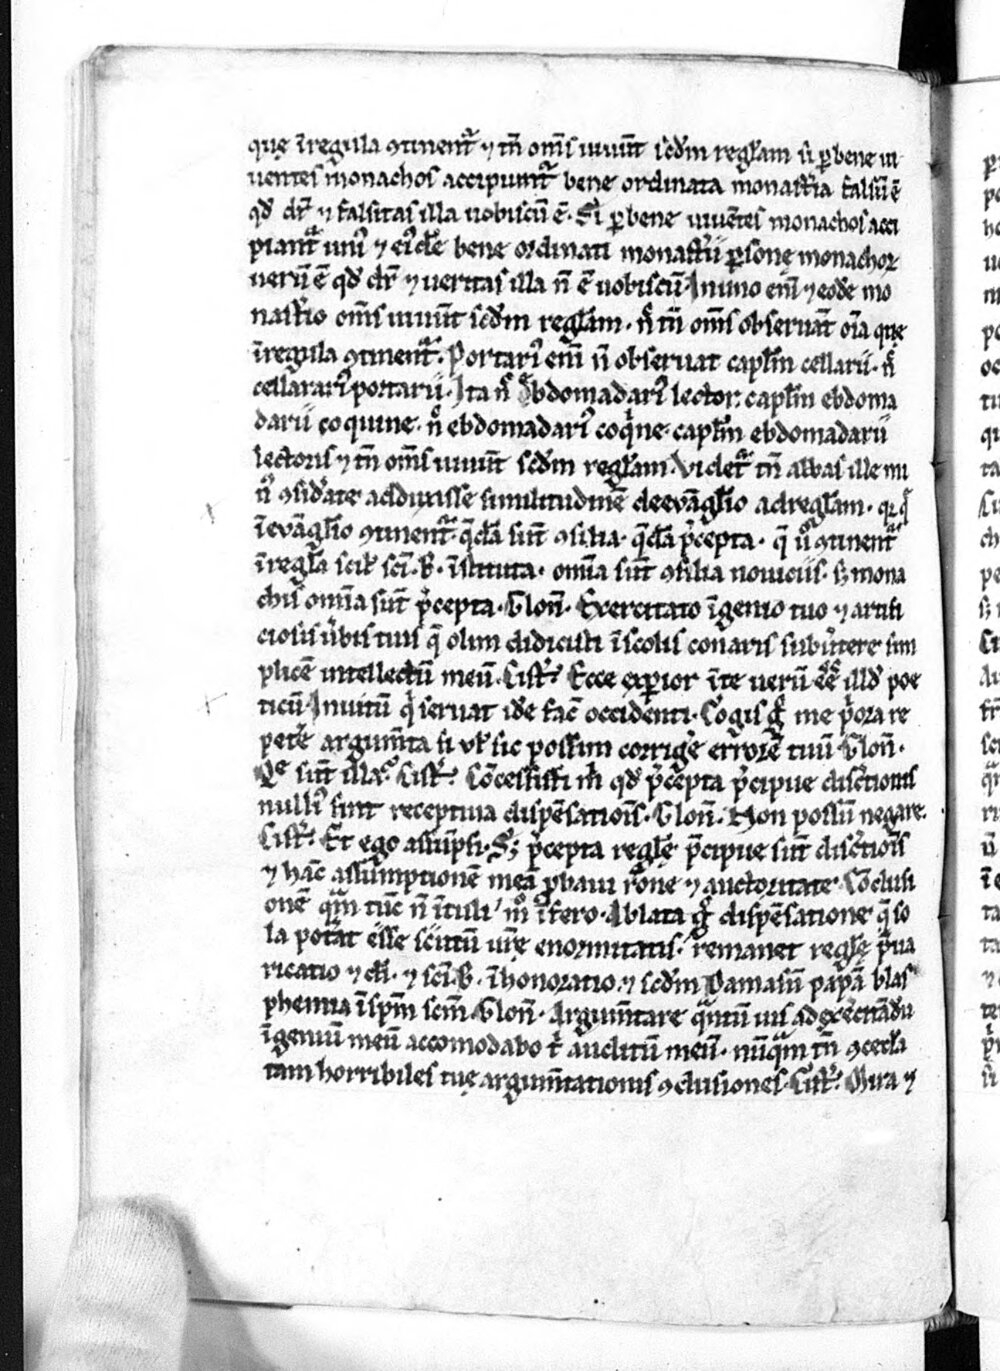 quę i̅regula ꝯtinent᷑ ⁊ tn̅ om̅s uiuu̅t scd̅m regłam si ꝑ bene ui
uentes monachos accipiunt᷑ bene ordinata monast͛ia falsu̅ e̅
qd̅ dr̅ ⁊ falsitas illa uobiscu̅ e̅. Si ꝑ bene uiue̅tes monachos acci
piant᷑ uni᷒ ⁊ ei᷒de̅ bene ordinati monast͛ii ꝑsonę monachoꝝ
ueru̅ e̅ qd̅ dr̅ ⁊ ueritas illa n̅ e̅ uobiscu̅. In uno eni̅ ⁊ eode̅ mo
nast͛io om̅s uiuu̅t scd̅m regłam. nͨ tn̅ om̅s obseruа̅t oi̅a quę
i̅regula ꝯtinent᷑. Portari᷒ eni̅ n̅ obseruat capłm cellarii. nͨ
cellarari᷒ portarii. Ita nͨ ebdomadari᷒ lector: capłm ebdoma
darii coquine. nͨ ebdomadari᷒ coqͥne. capłm ebdomadarii
lectoris ⁊ tn̅ om̅s uiuu̅t scd̅m regłam. Videt᷑ tn̅ abbas ille mi
n᷒ ꝯsid͛ate adduxisse similitudine̅ de eua̅glio ad regłam. qꝛ qͣ
i̅ eua̅glio ꝯtinent᷑. qͣda̅ su̅t ꝯsilia. qͣda̅ p͛cepta. qͣ u͛ ꝯtinent᷑
i̅ regła scił sci̅. B. i̅stituta. omi̅a su̅t ꝯsilia nouiciis. sꝫ mona
chis omi̅a su̅t p͛cepta. Clon̅. Exercitato i̅genio tuo ⁊ artifi
ciosis u͛bis tuis qͣ olim didicisti i̅ scolis conaris subu͛tere sim
plice̅ intellectu̅ meu̅. Cist͛. Ecce exꝑior i̅ te ueru̅ e̅e̅ illd̅ poe
ticu̅. Inuitu̅ qͥ seruat ide̅ fac̅ occidenti. Cogis gͦ me pͥora re
pete̅ argum̅ta si uł sic possim corrige̅ errore̅ tuu̅ Clon̅.
Qͤ su̅t illa? Cist͛. Co̅cessisti m̊ qd̅ p͛cepta p͛cipue disc͛tionis
nulli᷒ sint receptiua dispe̅satio̅is. Clon̅. Non possu̅ negare.
Cist͛. Et ego assu̅psi. Sꝫ p͛cepta regłę p͛cipue su̅t disc͛tio̅is
⁊ hac̅ assu̅mptione̅ mea̅ ꝓbaui ro̅ne ⁊ auctoritate. Co̅clusi
one̅ qͣm tuc̅ n̅ i̅tuli. mͦ i̅fero. Ablata gͦ dispe̅satione qͣ so
la pot͛at esse scutu̅ ur̅ę enormitatis. remanet regłę p͛ua
ricatio ⁊ ⁊ sci̅. B. i̅honoratio. ⁊ scd̅m Damasu̅ papa̅ blas
phemia i̅ spm̅ scm̅. Clon̅. Argum̅tare qͣntu̅ uis ad
i̅geniu̅ meu̅ accomodabo t̛ auditu̅ meu̅. nu̅qͣm tn̅ ꝯceda̅
tam horribiles tuę argum̅tationis ꝯclusiones. Cist͛. Mira ⁊